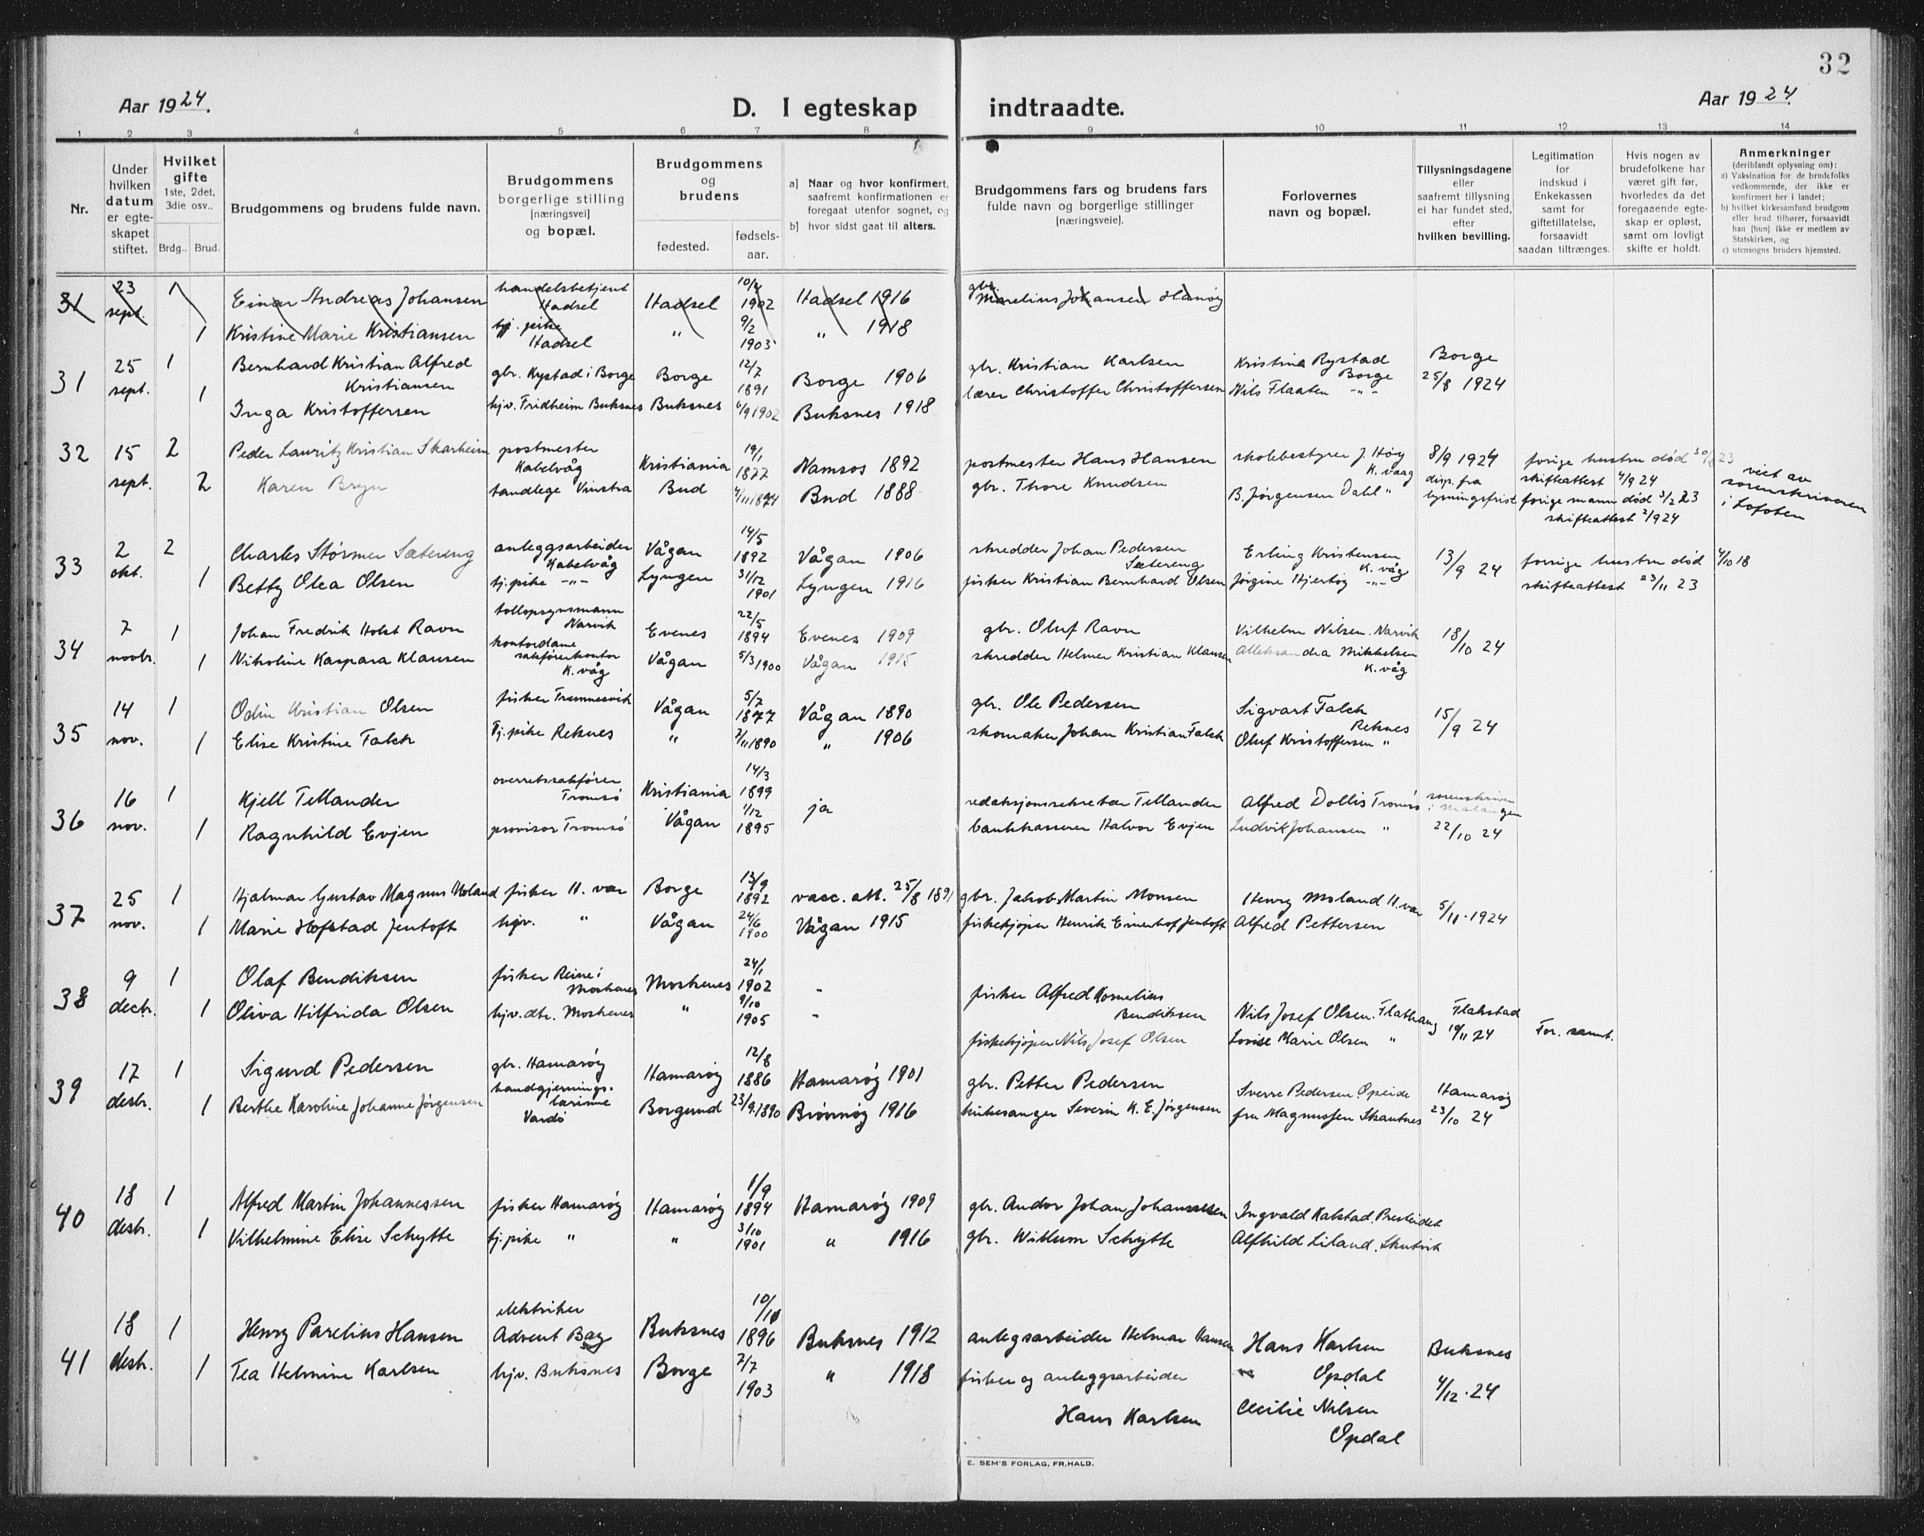 32
Aar 1924.
D. I egteskap indtraadte.
Aar 1924.
1 2 3 4 5 6 7 8 9 10 11 12 13 14
Nr.
Under hvilken datum er egte-skapet stiftet.
Hvilket gifte
1ste, 2det, 3die osv..
Brdg.. Brud.
Brudgommens og brudens fulde navn.
Brudgommens borgerlige stilling [næringsvei] og bopæl.
Brudgommens og brudens
fødested.
fødsels-aar.
a] Naar og hvor konfirmert, saafremt konfirmationen er foregaat utenfor sognet, og
b] hvor sidst gaat til alters.
Brudgommens fars og brudens fars fulde navn og borgerlige stillinger [næringsveie].
Forlovernes navn og bopæl.
Tillysningsdagene eller saafremt tillysning ei har fundet sted, efter hvilken bevilling.
Legitimation for indskud i Enkekassen samt for giftetillatelse, forsaavidt saadan tiltrænges.
Hvis nogen av brudefolkene har været gift før, hvorledes da det foregaaende egte-skap er opløst, samt om lovligt skifte er holdt.
Anmerkninger
(deriblandt oplysning om):
a) Vaksination for de brudefolks vedkommende, der ikke er konfirmert her i landet;
b) hvilket kirkesamfund brudgom eller brud tilhører, forsaavidt han [hun] ikke er medlem av Statskirken, og
c) utensogns bruders hjemsted.
31 23 sept. 1 Einar Andreas Johansen handelsbetjent Hadsel Hadsel 10/4 1902 Hadsel 1916 gbr. Marelius Johansen Hanøy
1 Kristine Marie Kristiansen tj. pike Hadsel " 9/2 1903 " 1918
31 25 sept. 1 Bernhard Kristian Alfred Kristiansen gbr. Rystad i Borge Borge 12/7 1891 Borge 1906 gbr. Kristian Karlsen Kristina Rystad Borge Borge 25/8 1924
1 Inga Kristoffersen hjv. Fridheim Buksnes Buksnes 6/9 1902 Buksnes 1918 lærer Christoffer Christoffersen Nils Flaaten -"-
32 15 sept. 2 Peder Lauritz Kristian Skarheim postmester Kabelvåg Kristiania 19/1 1877 Namsos 1892 postmester Hans Hansen skolebestyrer J. Høy K. vaag 8/9 1924 forige hustru død 30/6 23 skifteattest 4/9 24 viet av sorenskriveren i Lofoten
2 Karen Bryn tandlege Vinstra Bud 4/11 1874 Bud 1888 gbr. Thore Knudsen B. Jørgensen Dahl " disp. fra lysningsfrist forige mann død 3/2 23 skifteattest 2/9 24
33 2 okt. 2 Charles Størmer Sætereng anleggsarbeider Kabelvåg Vågan 14/5 1892 Vågan 1906 skredder Johan Pedersen Sætereng Erling Kristensen K. våg 13/9 24 forrige hustru død 4/10 18
1 Betty Olea Olsen tj. pike -"- Lyngen 31/12 1901 Lyngen 1916 fisker Kristian Bernhard Olsen Jørgine Hjertøy -"- skifteattest 23/11 23
34 7 novbr. 1 Johan Fredrik Holst Ravn tollopsynsmann Narvik Evenes 22/5 1894 Evenes 1909 gbr. Oluf Ravn Vilhelm Nilsen. Narvik 18/10 24
1 Nikoline Kaspara Klausen kontordame sakførerkontor K. våg Vågan 5/3 1900 Vågan 1915 skredder Helmer Kristian Klausen Alleksandra Mikkelsen K. våg
35 14 nov. 1 Odin Kristian Olsen fisker Vågan 5/7 1877 Vågan 1890 gbr. Ole Pedersen Sigvart Falch Reknes 15/9 24
1 Elise Kristine Falch tj. pike Reknes " 2/11 1890 " 1906 skomaker Johan Kristian Falch Oluf Kristoffersen "
36 16 nov. 1 Kjell Tellander overretssakfører Tromsø Kristiania 14/3 1899 ja redaksjonssekretær Tellander Alfred Dollis Tromsø sorenskriver i Malangen
1 Ragnhild Evjen provisor Tromsø Vågan 1/12 1895 bankkasserer Halvor Evjen Ludvik Johansen " 22/10 24
37 25 nov. 1 Hjalmar Gustav Magnus Moland fisker H. vær Borge 13/9 1892 vacc. att. 25/8 1891 gbr. Jakob Martin Monsen Henry Moland H. vær 5/11. 1924
1 Marie Hofstad Jentoft hjv. " Vågan 24/6 1900 Vågan 1915 fiskekjøper Henrik Einerhof Jentoft Alfred Pettersen
38 9 decbr. 1 Olaf Bendiksen fisker Reine i Moskenes Moskenes 24/1 1902 - fisker Alfred Kornelius Bendiksen Nils Josef Olsen. Flakstad 19/11 24 For. samt.
1 Oliva Hilfrida Olsen hjv. dtr. Moskenes " 9/10 1905 - fiskekjøper Nils Josef Olsen Lovise Marie Olsen "
39 17 desbr. 1 Sigurd Pedersen gbr. Hamarøy Hamarøy 12/8 1886 Hamarøy 1901 gbr. Petter Pedersen Sverre Pedersen. Opeide Hamarøy 23/10 24
1 Berthe Karoline Johanne Jørgensen handgjernings-lærerinne Vardø Borgund 23/9. 1890 Brönnöy 1916 kirkesanger Severin K. E. Jørgensen fru Magnussen Skautnes
40 18 desbr. 1 Alfred Martin Johannessen fisker Hamarøy Hamarøy 1/9 1894 Hamarøy 1909 gbr. Andor Johan Johannessen Ingvald Kalstad. Presteidet
1 Vilhelmine Elise Schytte tj. pike " " 3/10 1901 " 1916 gbr. Willum Schytte Alfhild Liland. Skutvik
41 18 desbr. 1 Henry Parelius Hansen elektriker Advent Bay Buksnes 10/10 1896 Buksnes 1912 anlegsarbeider Helmar Hansen Hans Karlsen Opdal Buksnes 4/12. 24
1 Tea Helmine Karlsen hjv. Buksnes Borge 2/7 1903 " 1918 fisker og anleggsarbeider Hans Karlsen Cecilie Nilsen Opdal
E. SEM'S FORLAG, FR.HALD.